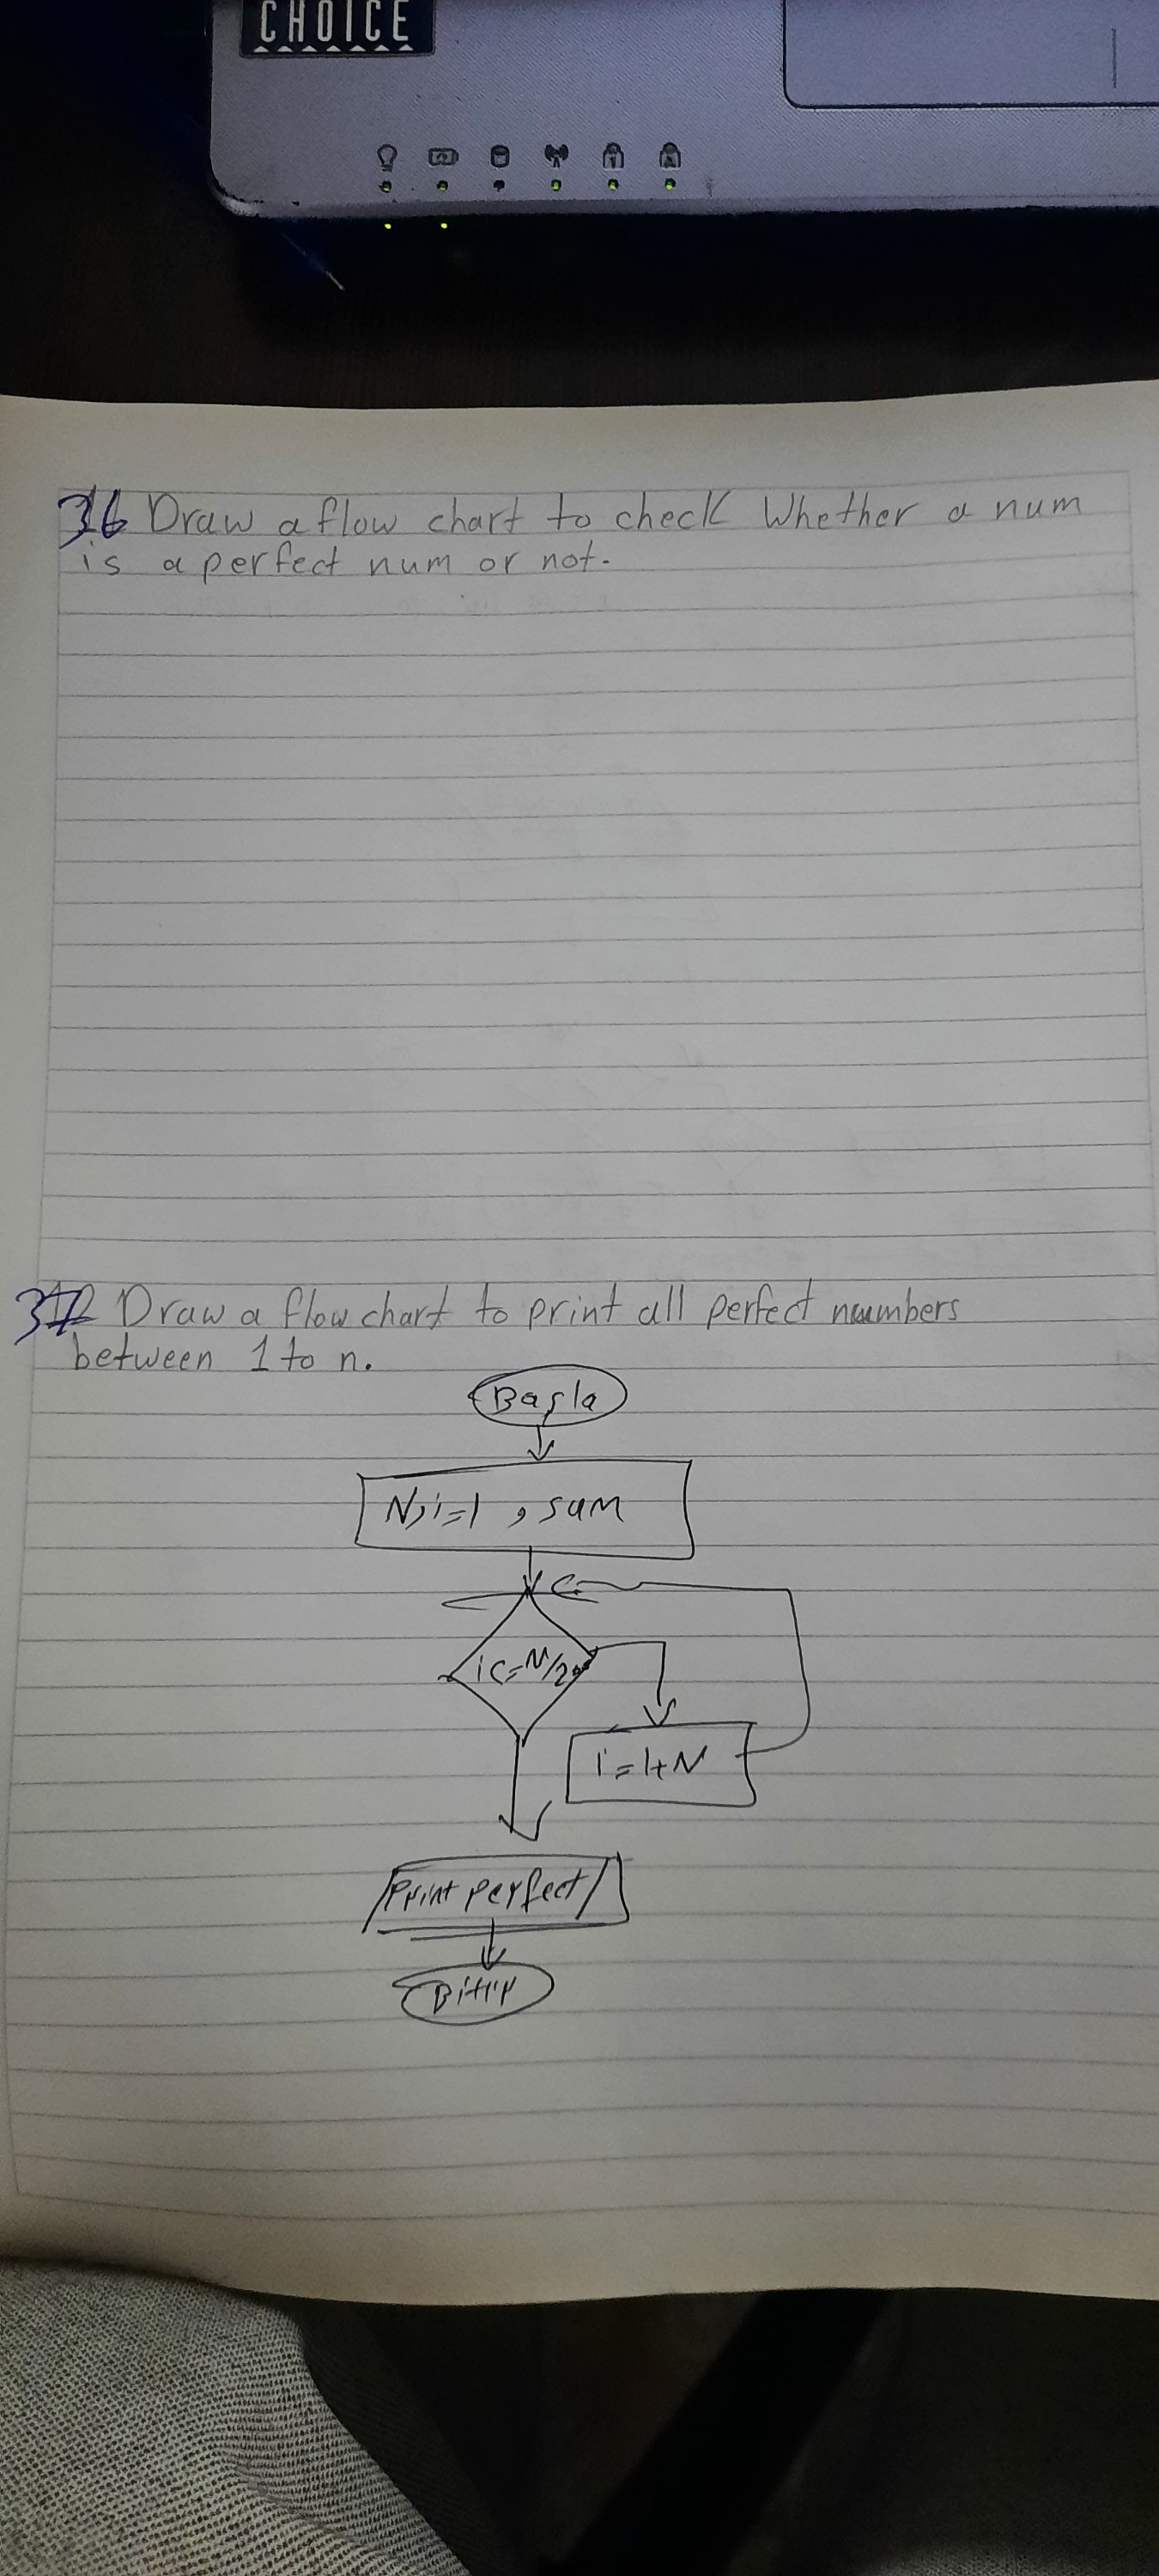 CHOICE
36 Draw a flow chart to check Whether a num
is a perfect num or not.
37 Draw a flow chart to print all perfect numbers
between 1 to n.
Başla
N, i=1 , sum
i <= N/2
i = 1+N
Print perfect
Bitir